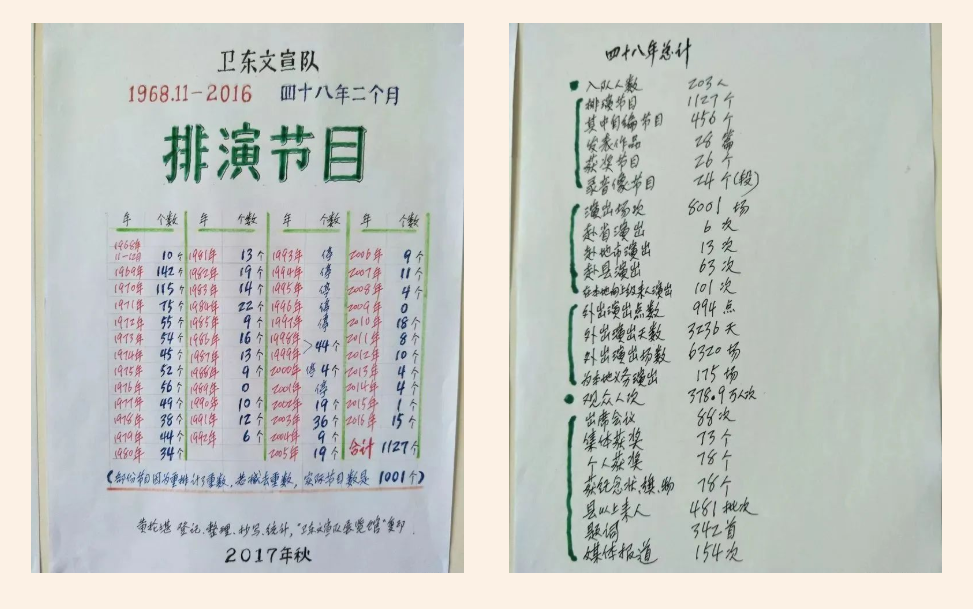 卫东文宣队
1968.11-2016 四十八年二个月
排演节目
年 个数 年 个数 年 个数 年 个数
1968年11-12月 10个 1981年 13个 1993年 停 2006年 9个
1969年 142个 1982年 19个 1994年 停 2007年 11个
1970年 115个 1983年 14个 1995年 停 2008年 4个
1971年 75个 1984年 22个 1996年 停 2009年 0
1972年 55个 1985年 9个 1997年 停 2010年 18个
1973年 54个 1986年 16个 1998年 2011年 8个
1974年 45个 1987年 13个 1999年 >44个 2012年 10个
1975年 52个 1988年 9个 2000年 停 4个 2013年 4个
1976年 56个 1989年 0 2001年 停 2014年 4个
1977年 49个 1990年 10个 2002年 19个 2015年 1个
1978年 38个 1991年 12个 2003年 36个 2016年 15个
1979年 44个 1992年 6个 2004年 9个 合计 1127个
1980年 34个 2005年 19个
(部份节目因为重排计了重数,若减去重数,实际节目数是1001个)
登记、整理、抄写、统计,"卫东文宣队展览馆"复印.
2017年秋
四十八年总计
入队人数 203人
排演节目 1127个
其中自编节目 456个
发表作品 28篇
获奖节目 26个
录音像节目 24个(段)
演出场次 8001场
赴省演出 6次
赴地市演出 13次
赴县演出 63次
在本地向上级来人演出 101次
外出演出点数 994点
外出演出天数 3236天
外出演出场数 6320场
为本地义务演出 175场
观众人次 378.9万人次
出席会议 88次
集体获奖 73个
个人获奖 78个
获纪念状、旗、物 78个
县以上来人 481批次
题词 342首
媒体报道 154次